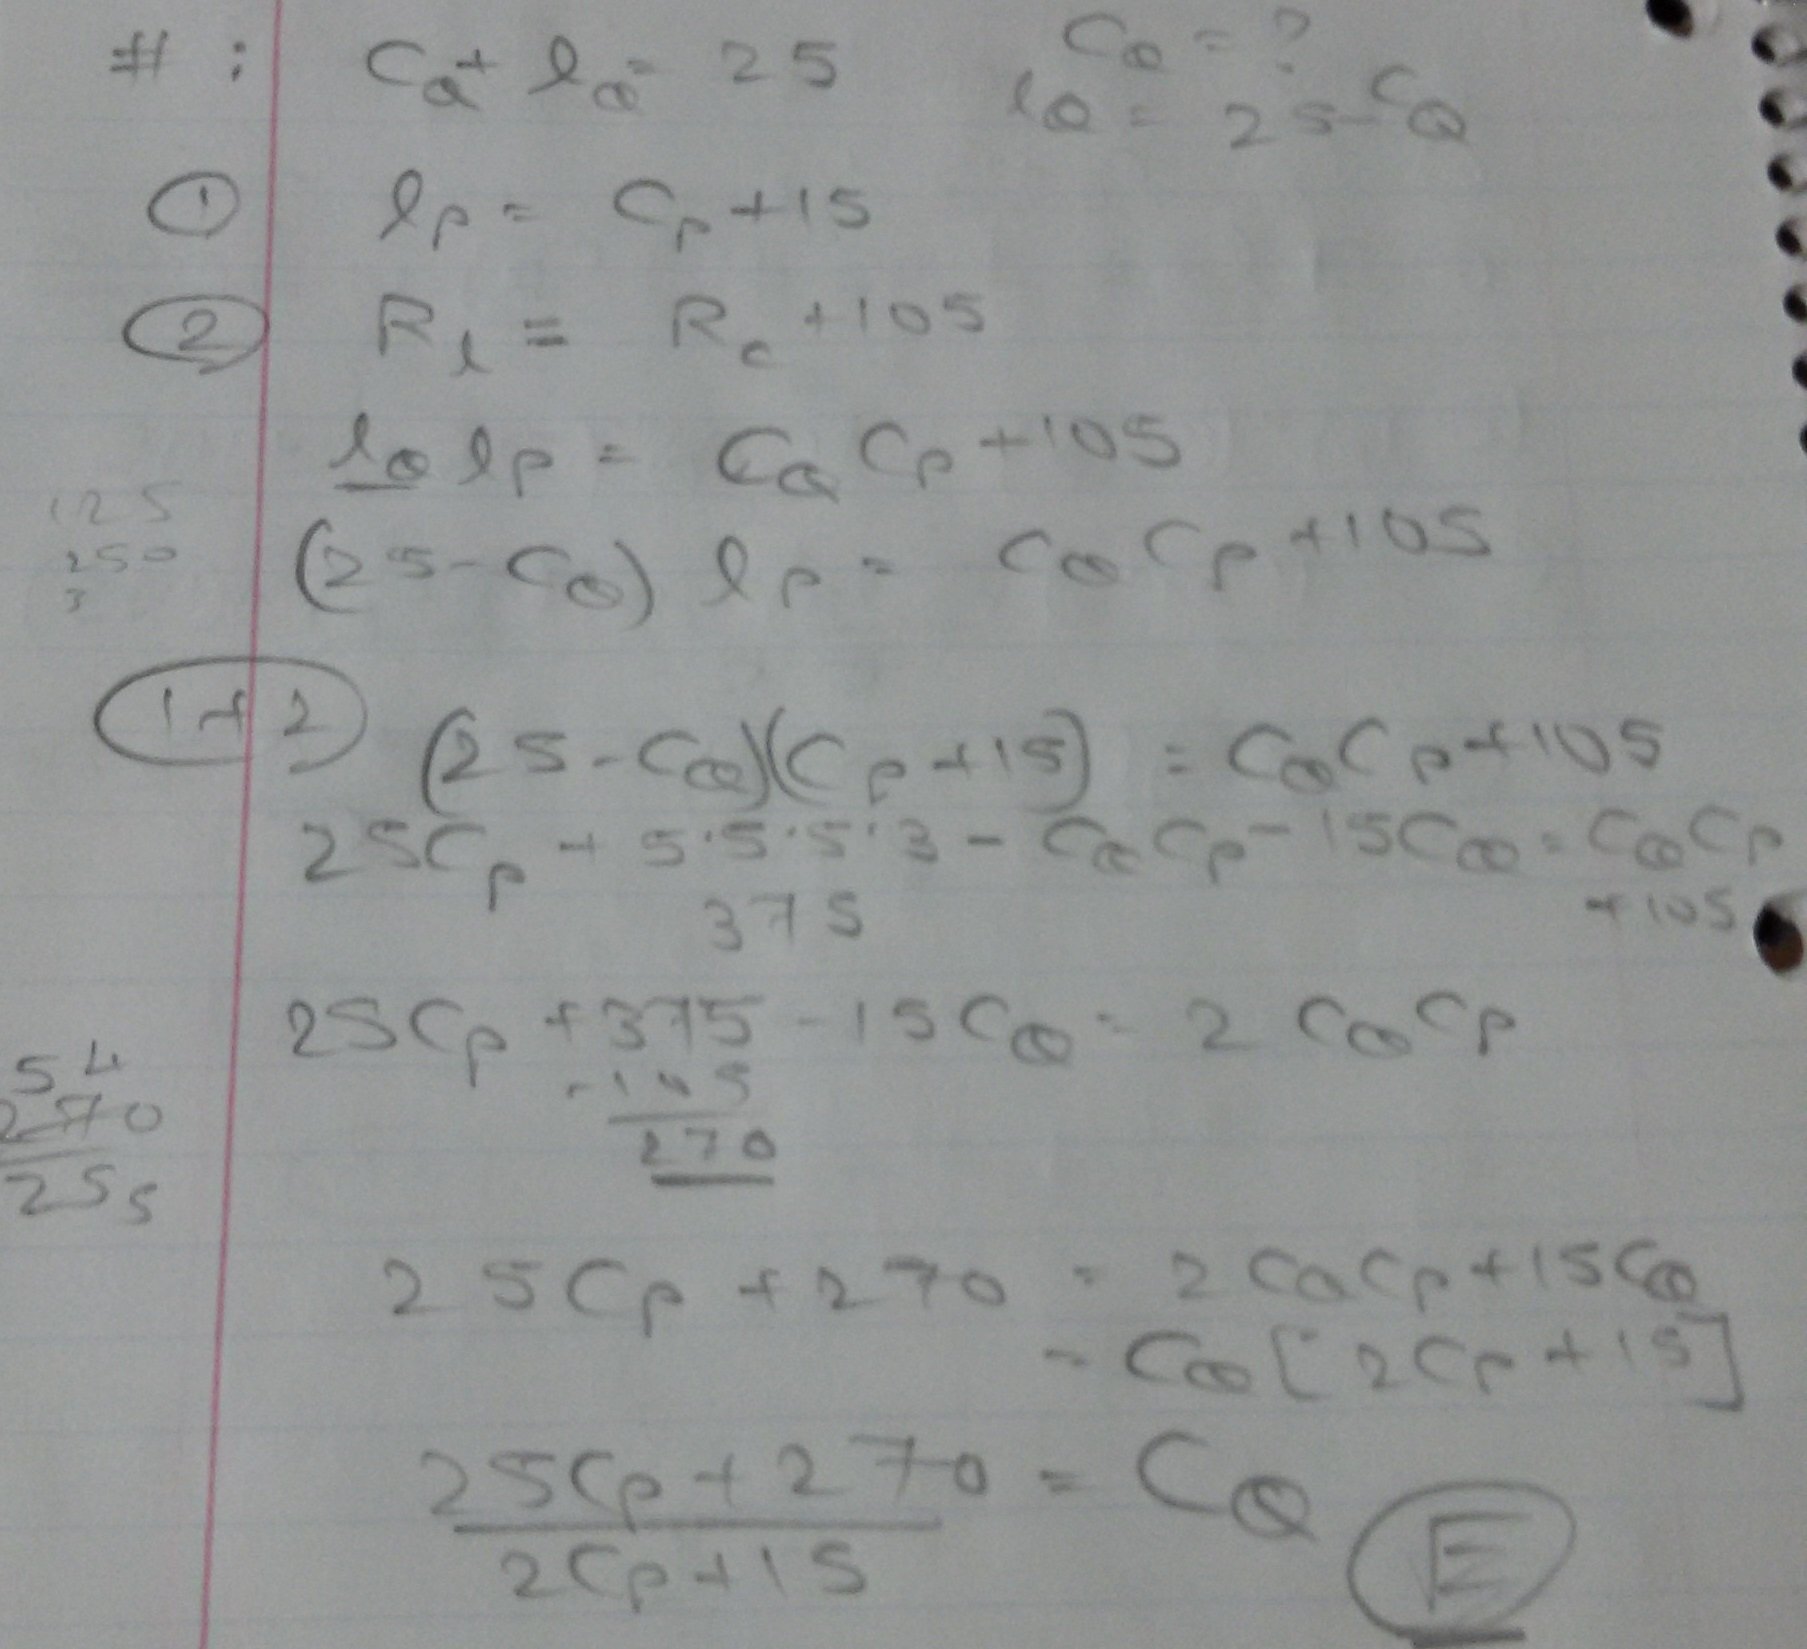 #: C_Q + l_Q = 25
C_Q = ?
l_Q = 25 - C_Q
① l_P = C_P + 15
② R_l = R_c + 105
l_Q l_P = C_Q C_P + 105
125
250
3
(25 - C_Q) l_P = C_Q C_P + 105
1+2 (25 - C_Q)(C_P + 15) = C_Q C_P + 105
25C_P + 5·5·5·3 - C_Q C_P - 15C_Q = C_Q C_P
375
+105
25C_P + 375 - 15C_Q = 2 C_Q C_P
-105
270
54
270
255
25C_P + 270 = 2C_Q C_P + 15C_Q
= C_Q [2C_P + 15]
25C_P + 270 = C_Q
2C_P + 15
E